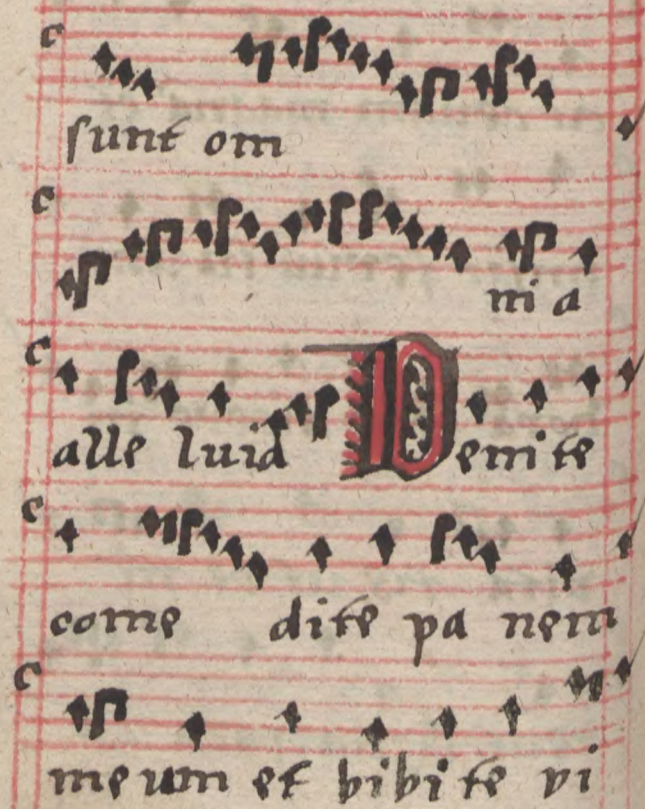 sunt om
ni a
alle luia Venite
come dite pa nem
meum et bibite vi